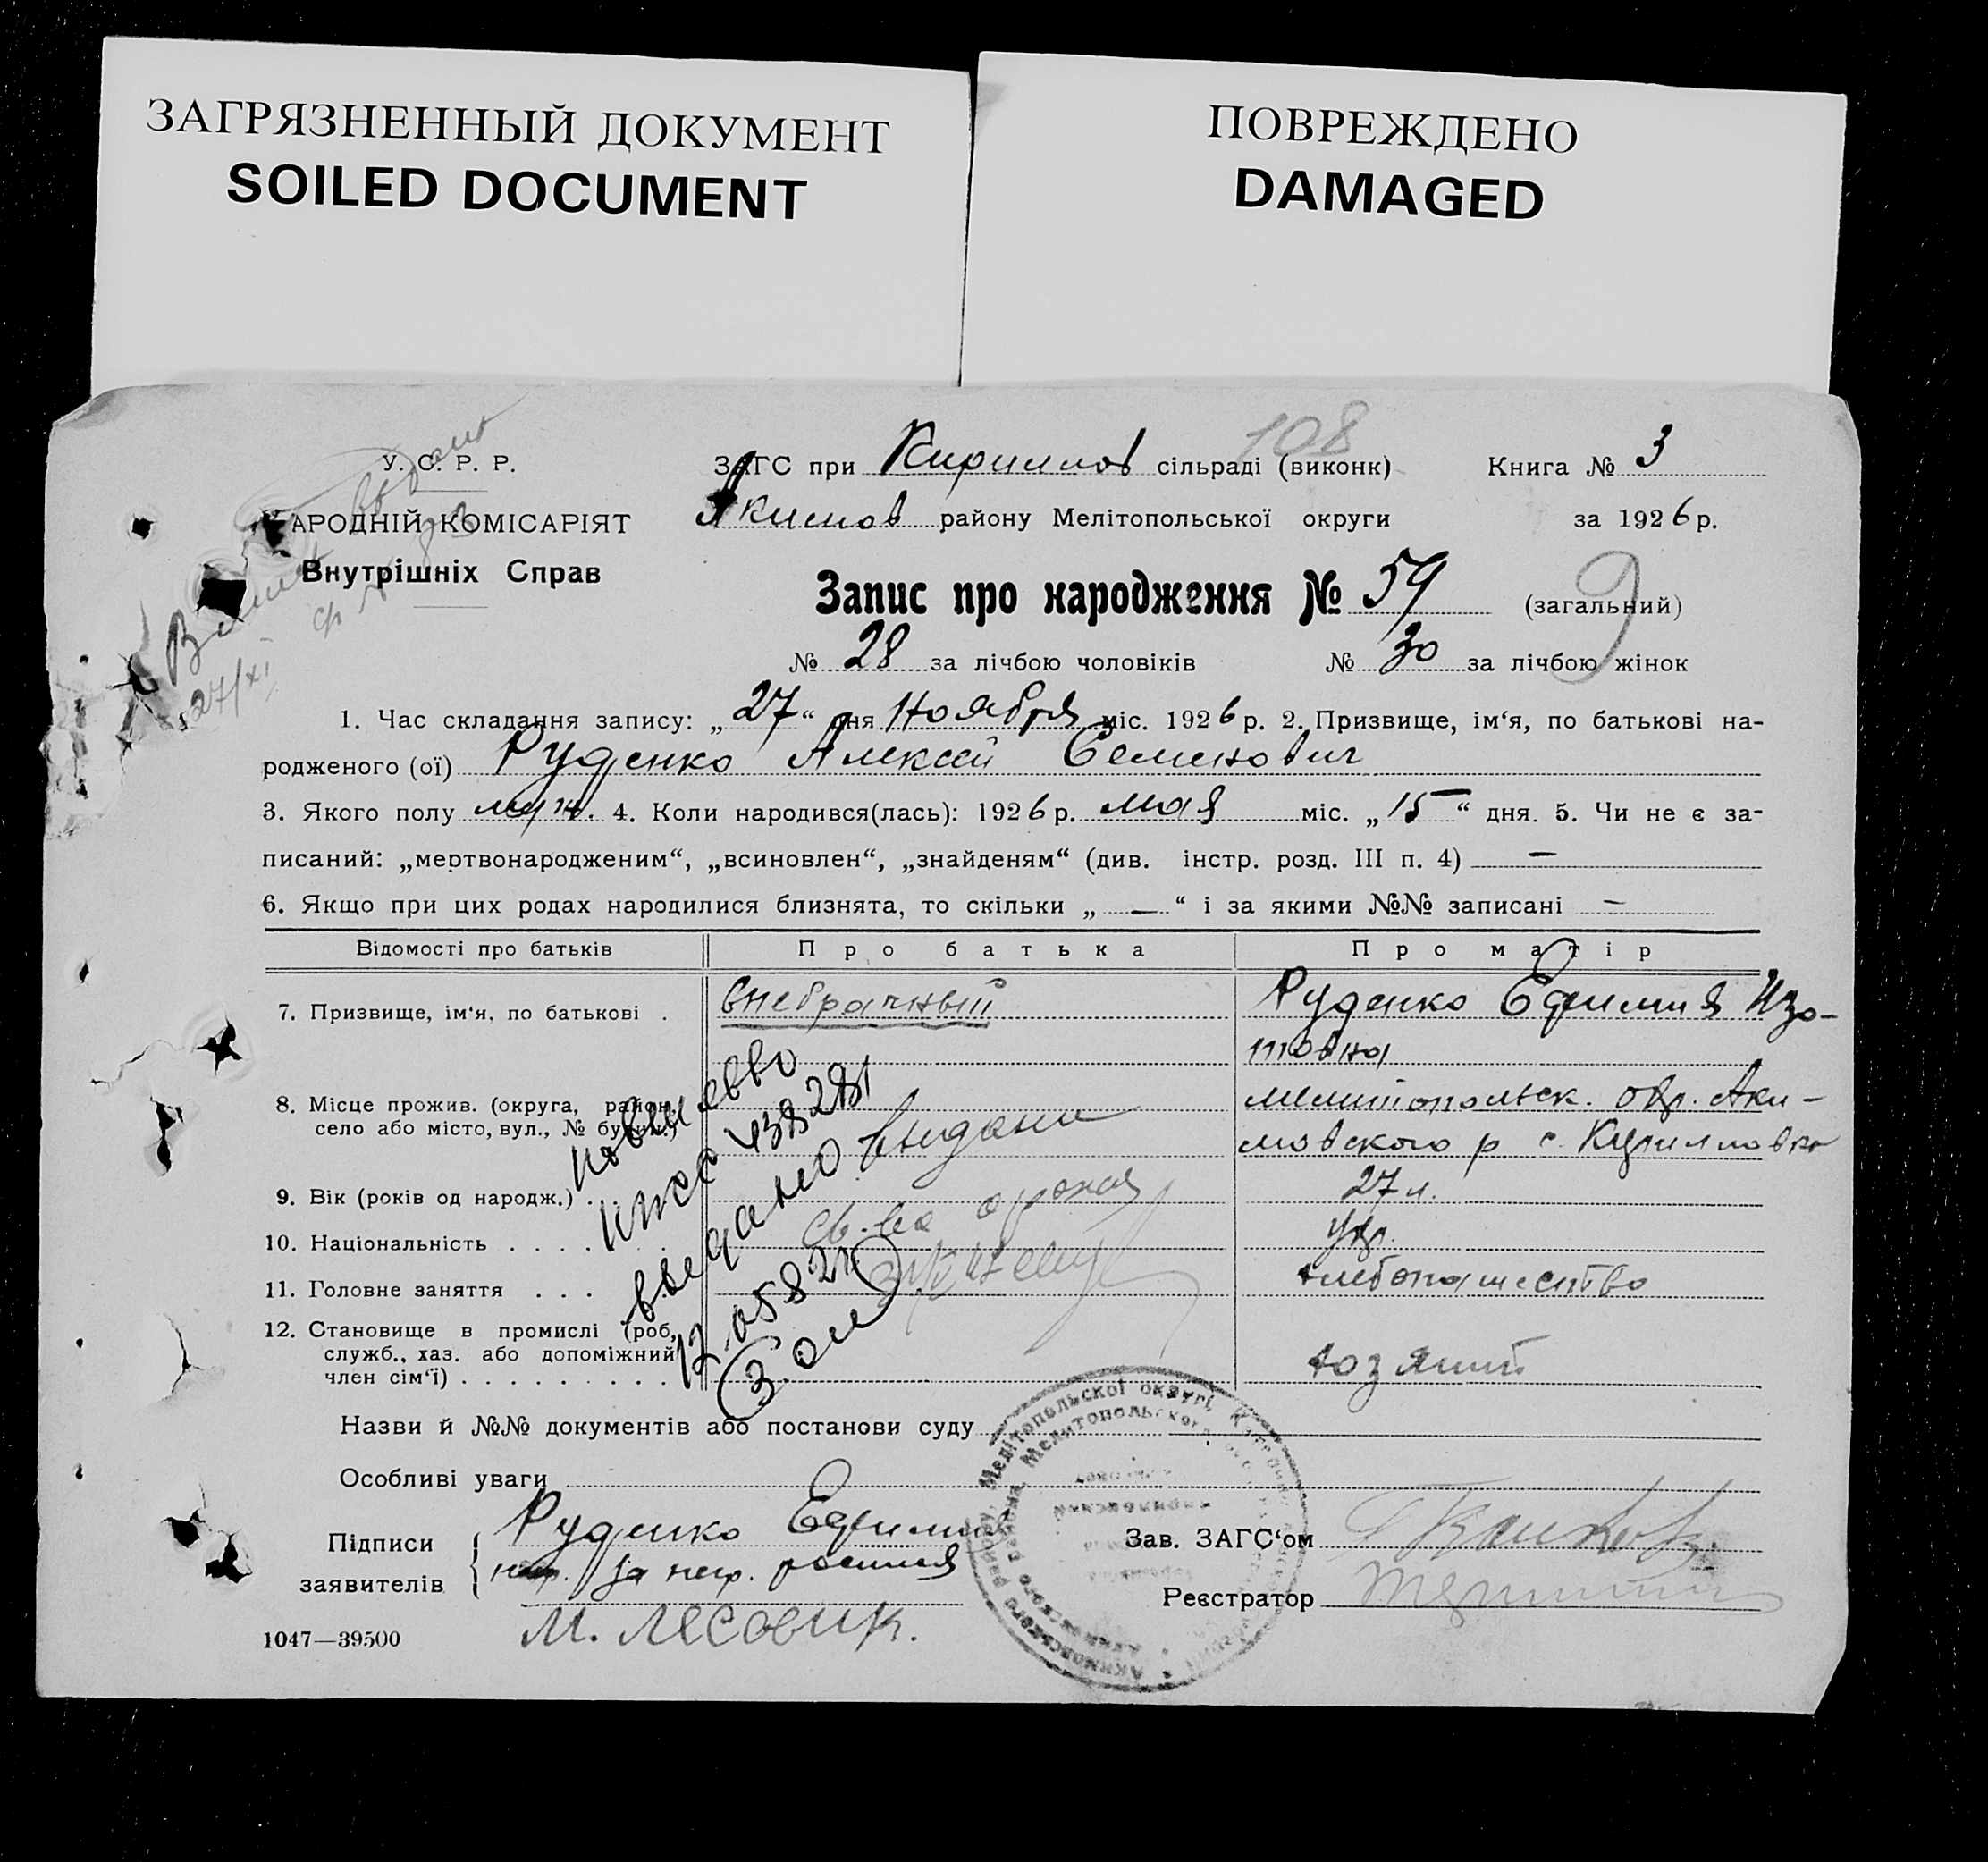 ЗАГРЯЗНЕННЫЙ ДОКУМЕНТ
SOILED DOCUMENT
ПОВРЕЖДЕНО
DAMAGED
108
У. С. Р. Р.
ЗАГС при Кириллов сільраді (виконк) Книга № 3
АРОДНІЙ КОМІСАРІЯТ
Акимов району Мелітопольської округи за 1926 р.
Внутрішніх Справ
Запис про народження № 59 (загальний)
27/XI
№ 28 за лічбою чоловіків № 30 за лічбою жінок
1. Час складання запису: „27“ дня Ноября міс. 1926 р. 2. Призвище, ім‘я, по батькові на-
родженого (ої) Руденко Алексей Семенович
3. Якого полу муж. 4. Коли народився(лась): 1926 р. мая міс. „15“ дня. 5. Чи не є за-
писаний: „мертвонародженим“, „всиновлен“, „знайденям“ (див. інстр. розд. III п. 4) —
6. Якщо при цих родах народилися близнята, то скільки „ — “ і за якими №№ записані —
Відомості про батьків Про батька Про матір
7. Призвище, ім‘я, по батькові . внебрачный Руденко Ефимия Изо-
товна
8. Місце прожив. (округа, район, мелитопольск. окр. Аки-
село або місто, вул., № будин.) мовского р. с. Кирилловка
9. Вік (років од народж.) . 27 л.
10. Національність . . . . укр.
11. Головне заняття . . . хлебопашество
12. Становище в промислі (роб,
служб., хаз. або допоміжний
член сім‘ї) . . . . . . . . . хозяин
выдано
Назви й №№ документів або постанови суду
Особливі уваги
Підписи
заявителів
Руденко Ефимия
за негр. росписа
М. Лесовик.
Зав. ЗАГС‘ом
Реєстратор
1047—39500